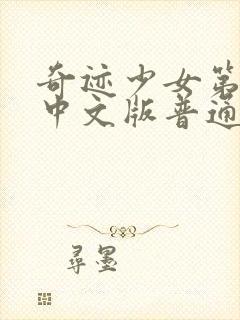 奇迹少女第
中文版普通
尋墨